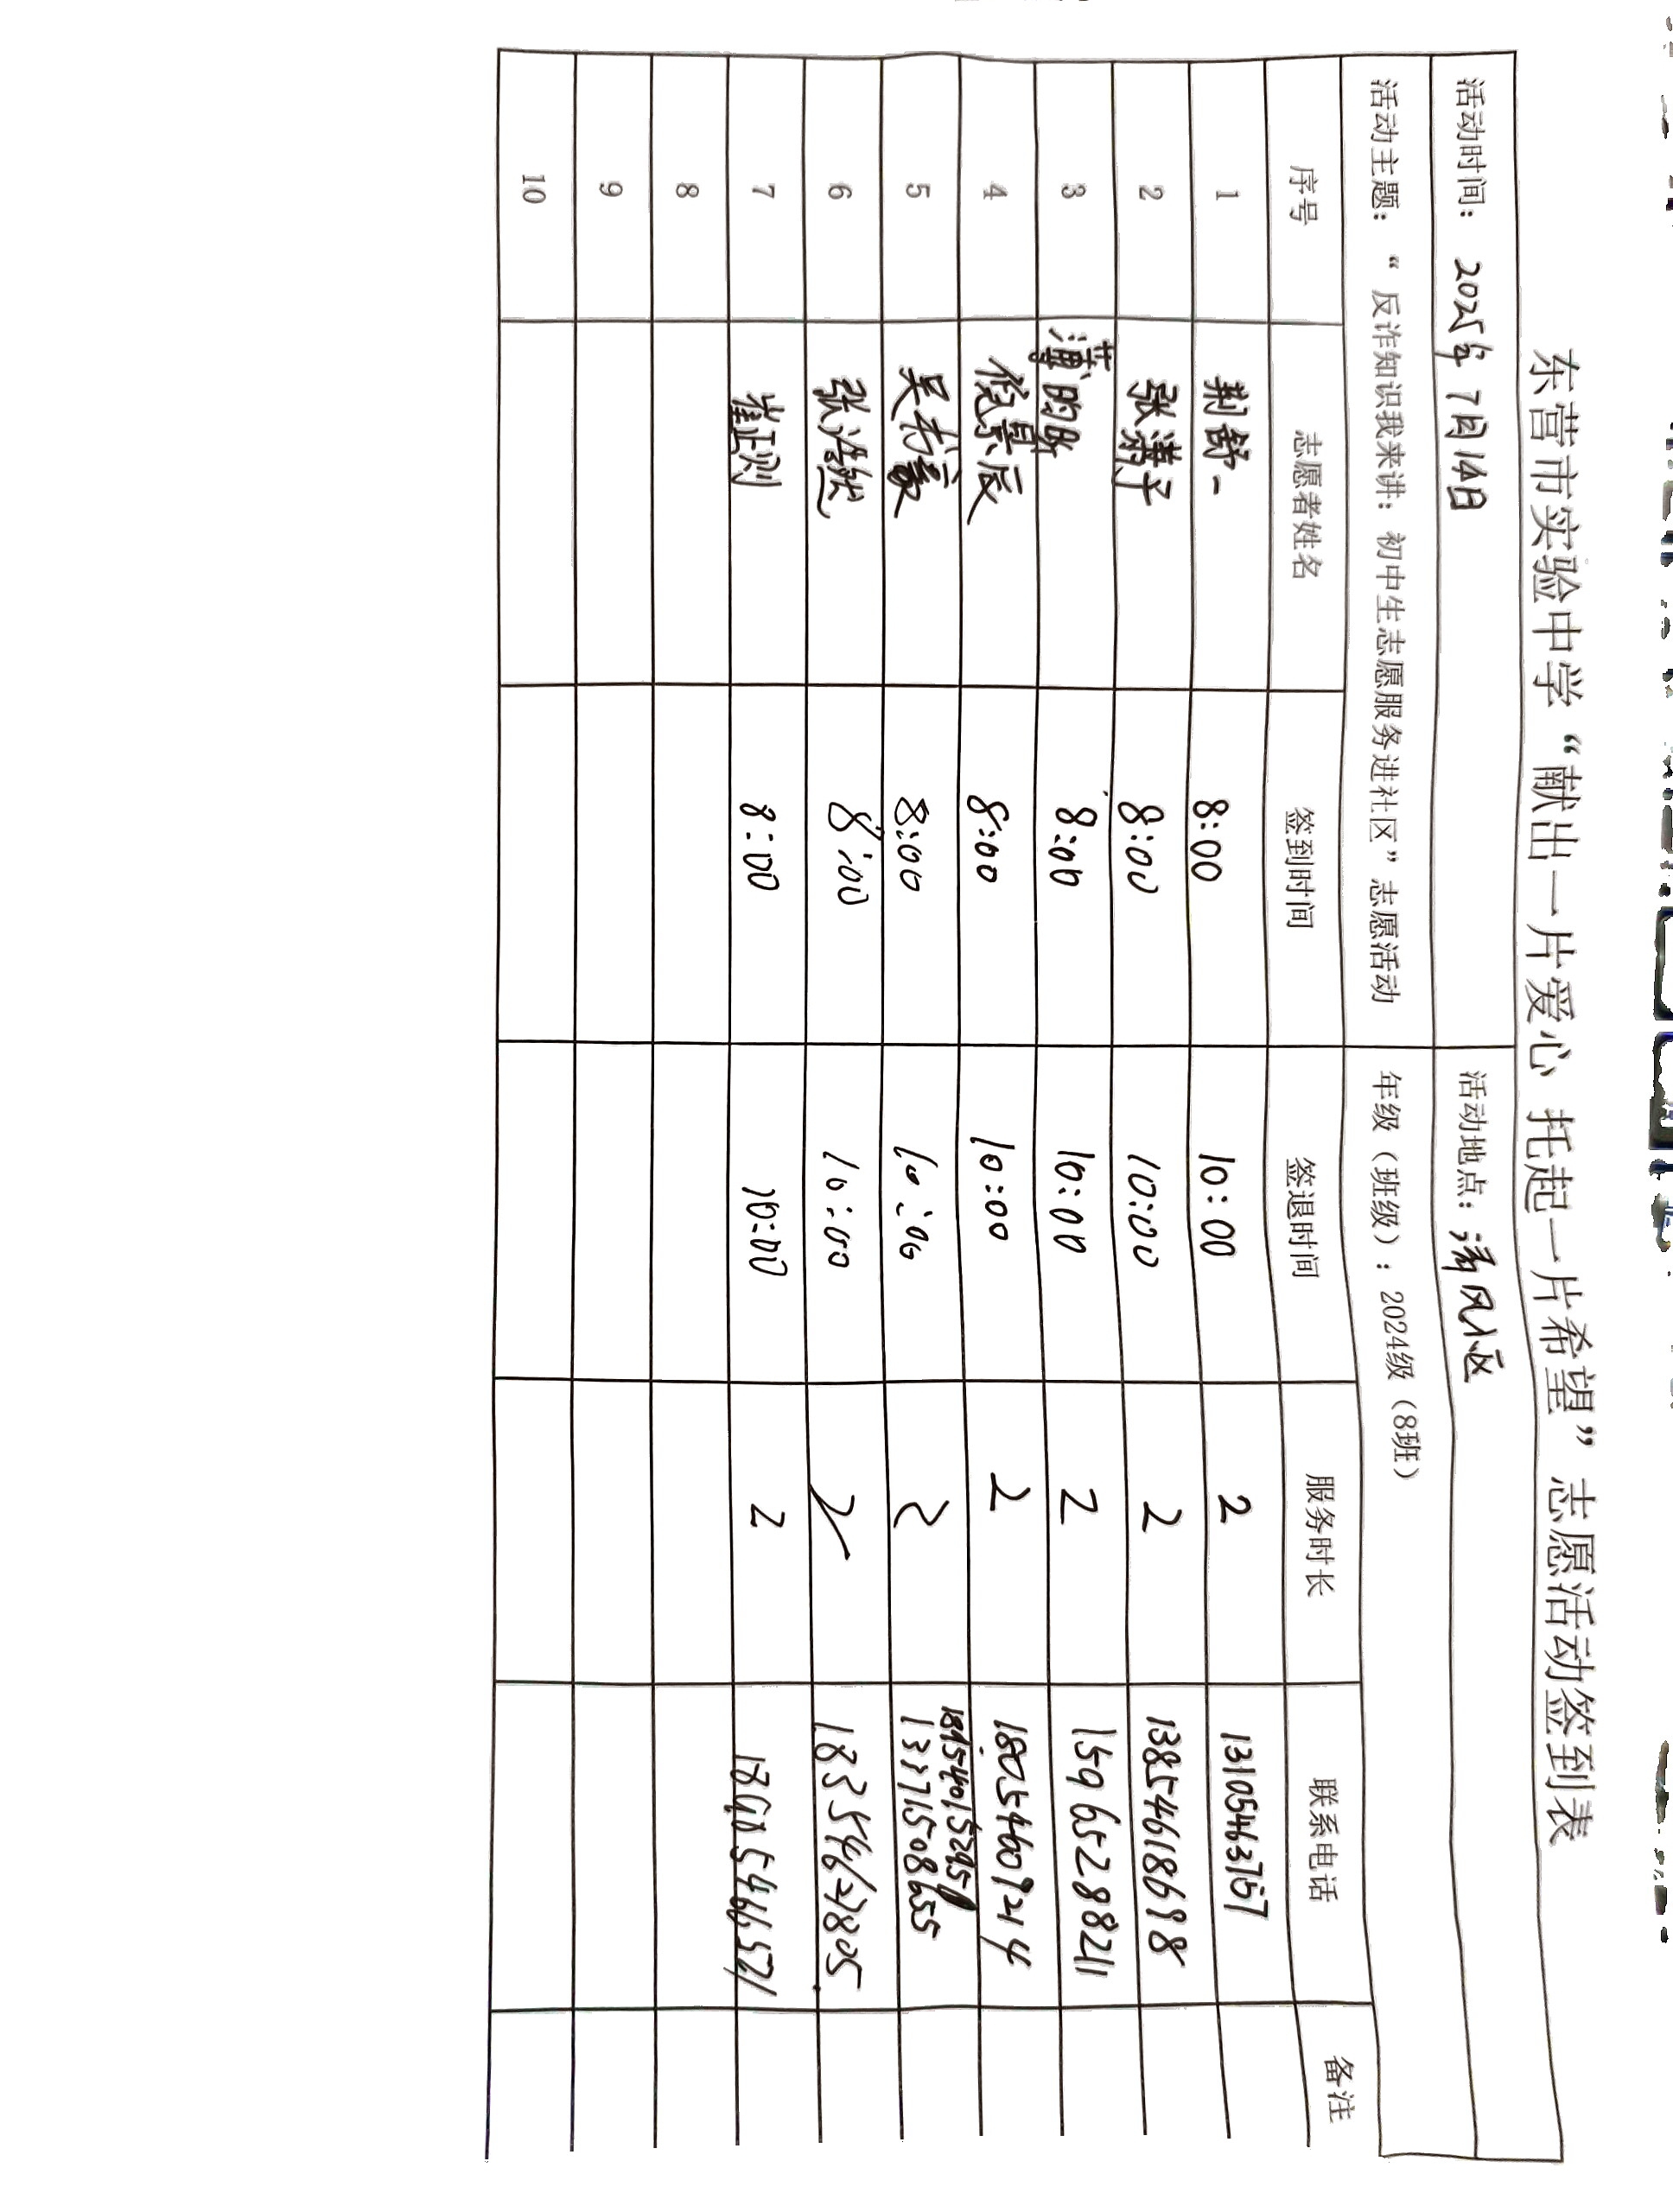 东营市实验中学“献出一片爱心 托起一片希望”志愿活动签到表
活动时间： 2025年 7月14日 活动地点：清风小区
活动主题：“ 反诈知识我来讲：初中生志愿服务进社区”志愿活动 年级（班级）：2024级（8班）
序号 志愿者姓名 签到时间 签退时间 服务时长 联系电话 备注
1 荆舒一 8:00 10:00 2 13105463757
2 张潇予 8:00 10:00 2 13854618698
3 薄昀昕 8:00 10:00 2 15965288211
4 倪景辰 8:00 10:00 2 18054609214
5 吴 8:00 10:00 2 13371508655
6 张浩然 8:00 10:00 2 18354627805
7 崔正 8:00 10:00 2
8
9
10